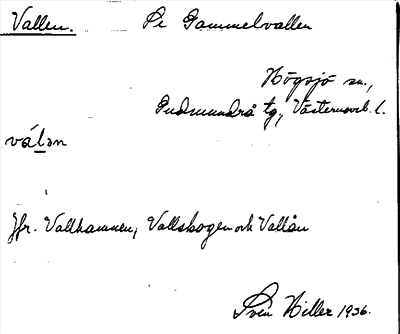 Vallen. Se Gammelvallen
Högsjö sn.,
Gudmundrå tg, Västernorrl. l.
válən
Jfr. Vallhamnen, Vallskogen och Vallån
Sven Hiller 1936.